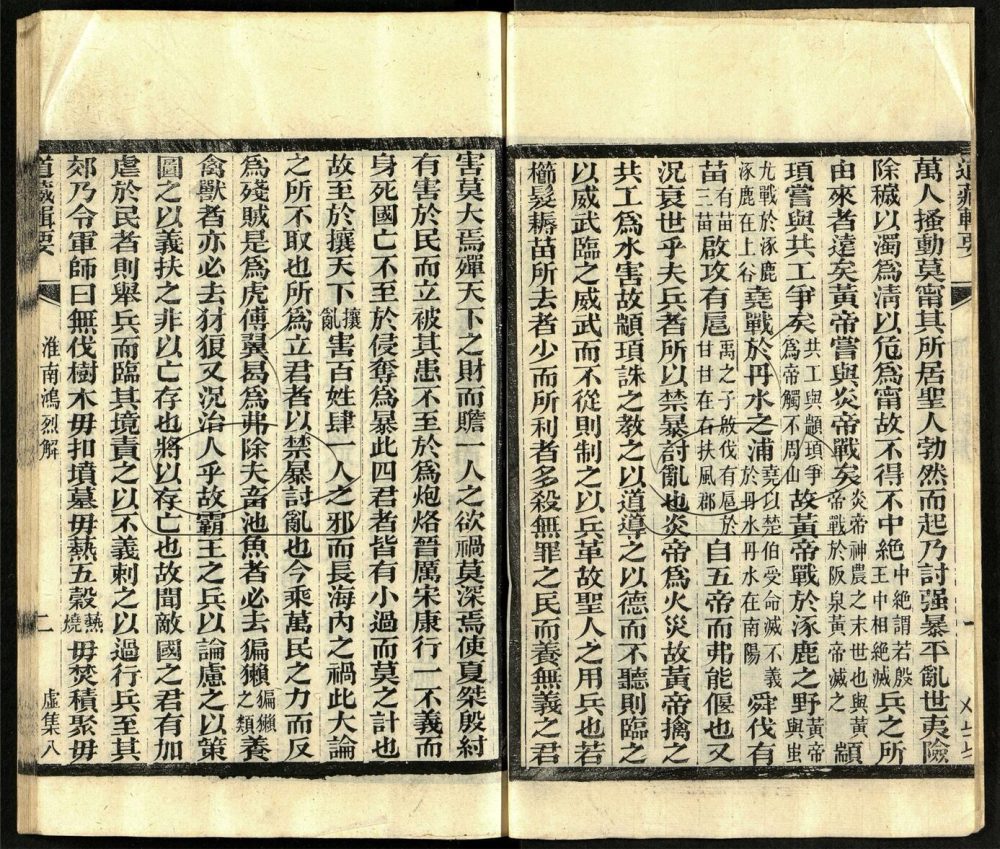 道藏輯要
萬人搔動莫甯其所居聖人勃然而起乃討强暴平亂世夷險
除穢以濁爲淸以危爲甯故不得不中絕中絕謂若殷王中相絕滅兵之所
由來者遠矣黃帝嘗與炎帝戰矣炎帝神農之末世也與黃帝戰於阪泉黃帝滅之顓
頊嘗與共工爭矣共工與顓頊爭爲帝觸不周山故黃帝戰於涿鹿之野黃帝與蚩
九戰於涿鹿涿鹿在上谷堯戰於丹水之浦堯以楚伯受命滅不義於丹水丹水在南陽舜伐有
苗有苗三苗啟攻有扈禹之子啟伐有扈於甘甘在右扶風郡自五帝而弗能偃也又
況衰世乎夫兵者所以禁暴討亂也炎帝爲火災故黃帝擒之
共工爲水害故顓頊誅之教之以道導之以德而不聽則臨之
以威武臨之威武而不從則制之以兵革故聖人之用兵也若
櫛髮耨苗所去者少而所利者多殺無罪之民而養無義之君
害莫大焉殫天下之財而贍一人之欲禍莫深焉使夏桀殷紂
有害於民而立被其患不至於爲炮烙晉厲宋康行一不義而
身死國亡不至於侵奪爲暴此四君者皆有小過而莫之計也
故至於攘天下攘亂害百姓肆一人之邪而長海內之禍此大論
之所不取也所爲立君者以禁暴討亂也今乘萬民之力而反
爲殘賊是爲虎傅翼曷爲弗除夫畜池魚者必去猵獺猵獺之類養
禽獸者亦必去豺狼又況治人乎故霸王之兵以論慮之以策
圖之以義扶之非以亡存也將以存亡也故聞敵國之君有加
虐於民者則舉兵而臨其境責之以不義刺之以過行兵至其
郊乃令軍師曰無伐樹木毋扣墳墓毋爇五穀爇燒毋焚積聚毋
道藏輯要
淮南鴻烈解
二
虛集八